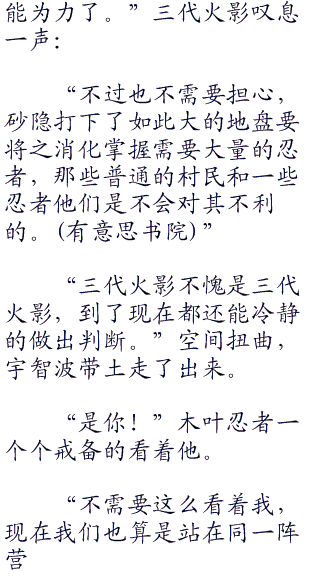 能为力了。”三代火影叹息
一声：
“不过也不需要担心，
砂隐打下了如此大的地盘要
将之消化掌握需要大量的忍
者，那些普通的村民和一些
忍者他们是不会对其不利
的。(有意思书院)”
“三代火影不愧是三代
火影，到了现在都还能冷静
的做出判断。”空间扭曲，
宇智波带土走了出来。
“是你！”木叶忍者一
个个戒备的看着他。
“不需要这么看着我，
现在我们也算是站在同一阵
营